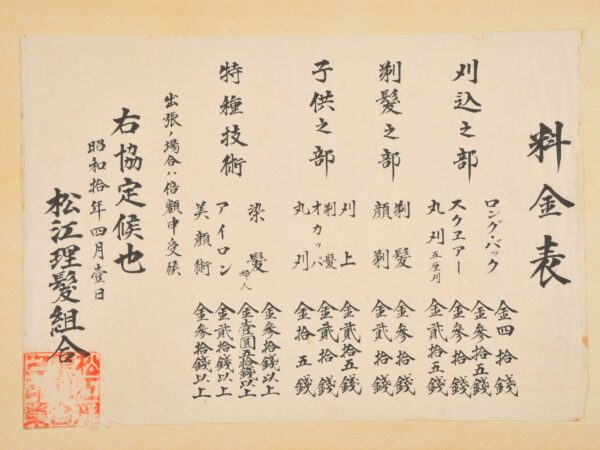 料金表
刈込之部
ロング・バック 金四拾錢
スクエアー 金参拾五錢
丸刈 五厘刈 金貳拾五錢
剃髪之部
剃髪 金参拾錢
顔剃 金貳拾錢
子供之部
刈上 金貳拾五錢
剃髪 オカッパ 金貳拾錢
丸刈 金拾五錢
特種技術
染髪 金参拾錢以上
婦人 金壹圓五拾錢以上
アイロン 金貳拾錢以上
美顔術 金参拾錢以上
出張ノ場合ハ倍額申受候
右協定候也
昭和拾年四月壹日
松江理髪組合